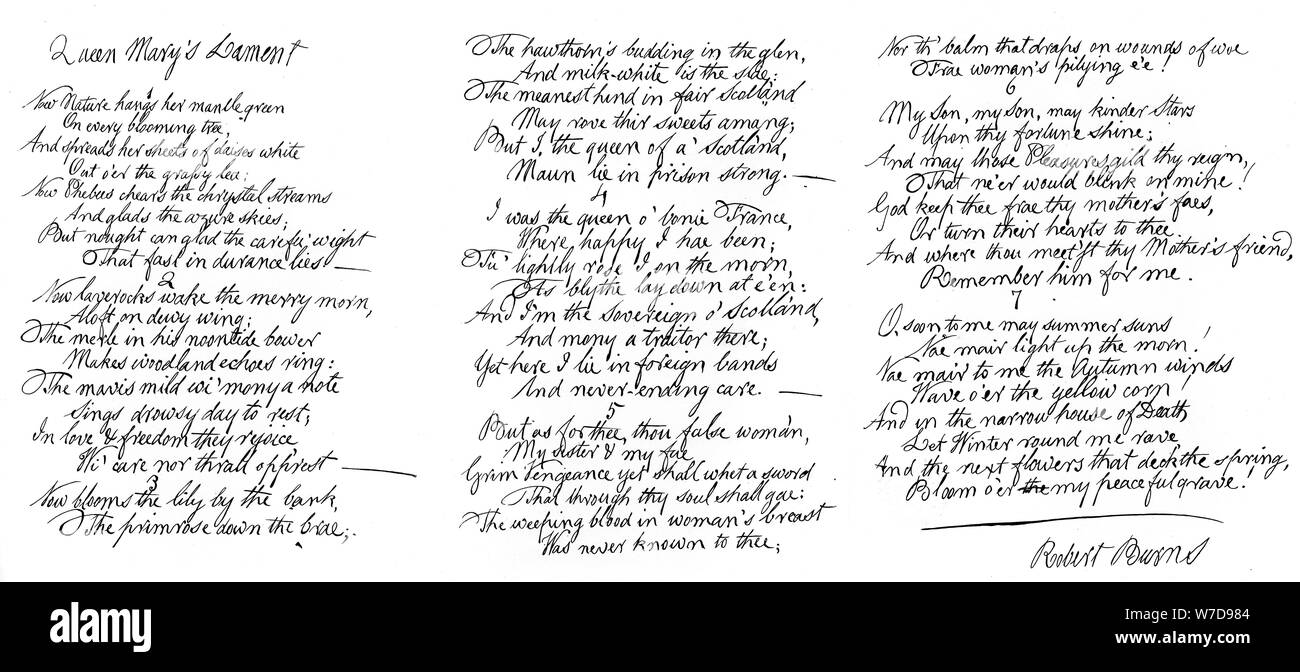 Queen Mary's Lament
1
Now Nature hangs her mantle green
On every blooming tree,
And spreads her sheets o' daises white
Out o'er the grassy lea:
Now Phebus chears the chrystal streams
And glads the azure skies;
But nought can glad the carefu' wight
That fast in durance lies —
2
Now laverocks wake the merry morn,
Aloft on dewy wing;
The merle in his noontide bower
Makes woodland echoes ring:
The mavis mild wi' mony a note
Sings drowsy day to rest;
In love & freedom they rejoice
Wi' care nor thrall opprest —
3
Now blooms the lily by the bank,
The primrose down the brae;
The hawthorn's budding in the glen,
And milk-white is the slae:
The meanest hind in fair Scotland
May rove thir sweets amang;
But I, the queen of a' Scotland,
Maun lie in prison strong. —
4
I was the queen o' bonie France,
Where happy I hae been;
Fu' lightly rose I on the morn,
As blythe lay down at e'en:
And I'm the sovereign o' Scotland,
And mony a traitor there;
Yet here I lie in foreign bands
And never-ending care. —
5
But as for thee, thou false woman,
My sister & my fae
Grim Vengeance yet shall whet a sword
That through thy soul shall gae:
The weeping blood in woman's breast
Was never known to thee;
Nor th' balm that draps on wounds of woe
Frae woman's pitying e'e!
6
My Son, my son, may kinder Stars
Upon thy fortune shine;
And may those Pleasures gild thy reign,
That ne'er would blink on mine!
God keep thee frae thy mother's faes,
Or turn their hearts to thee
And where thou meet'st thy Mother's friend,
Remember him for me.
7
O, soon to me may summer suns
Nae mair light up the morn!
Nae mair to me the Autumn winds
Wave o'er the yellow corn!
And in the narrow house of Death
Let Winter round me rave,
And the next flowers that deck the spring,
Bloom o'er the my peaceful grave!
Robert Burns
alamy
Image ID: W7D984
www.alamy.com